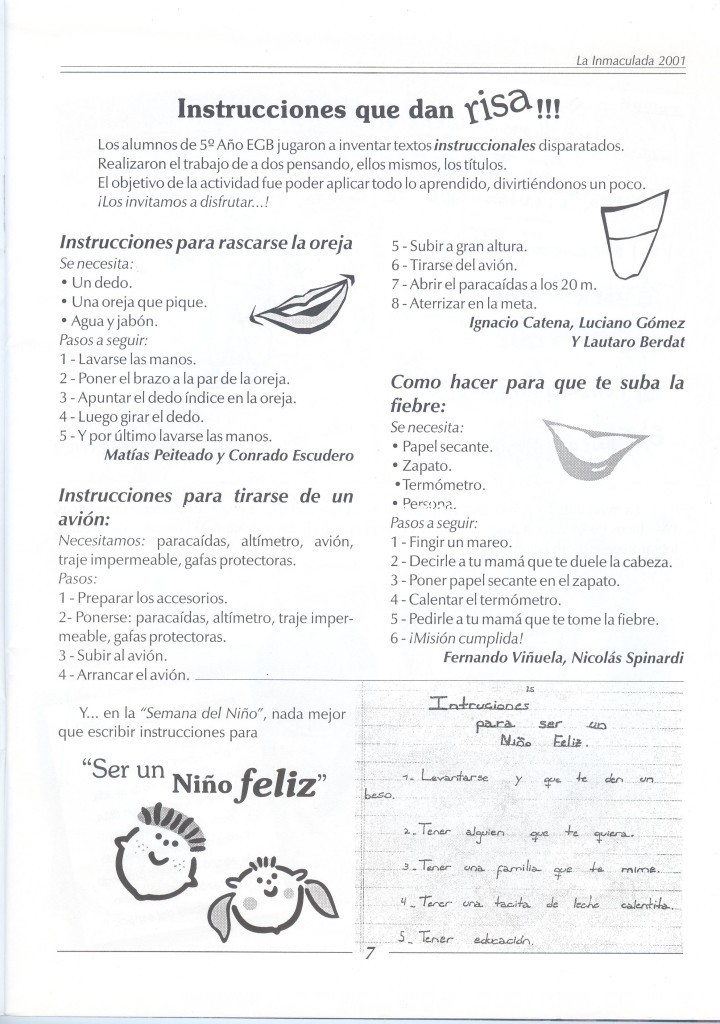 La Inmaculada 2001
Instrucciones que dan risa!!!
Los alumnos de 5º Año EGB jugaron a inventar textos instruccionales disparatados.
Realizaron el trabajo de a dos pensando, ellos mismos, los títulos.
El objetivo de la actividad fue poder aplicar todo lo aprendido, divirtiéndonos un poco.
¡Los invitamos a disfrutar...!
Instrucciones para rascarse la oreja
Se necesita:
• Un dedo.
• Una oreja que pique.
• Agua y jabón.
Pasos a seguir:
1 - Lavarse las manos.
2 - Poner el brazo a la par de la oreja.
3 - Apuntar el dedo índice en la oreja.
4 - Luego girar el dedo.
5 - Y por último lavarse las manos.
Matías Peiteado y Conrado Escudero
Instrucciones para tirarse de un
avión:
Necesitamos: paracaídas, altímetro, avión,
traje impermeable, gafas protectoras.
Pasos:
1 - Preparar los accesorios.
2- Ponerse: paracaídas, altímetro, traje imper-
meable, gafas protectoras.
3 - Subir al avión.
4 - Arrancar el avión.
5 - Subir a gran altura.
6 - Tirarse del avión.
7 - Abrir el paracaídas a los 20 m.
8 - Aterrizar en la meta.
Ignacio Catena, Luciano Gómez
Y Lautaro Berdat
Como hacer para que te suba la
fiebre:
Se necesita:
• Papel secante.
• Zapato.
• Termómetro.
• Persona.
Pasos a seguir:
1 - Fingir un mareo.
2 - Decirle a tu mamá que te duele la cabeza.
3 - Poner papel secante en el zapato.
4 - Calentar el termómetro.
5 - Pedirle a tu mamá que te tome la fiebre.
6 - ¡Misión cumplida!
Fernando Viñuela, Nicolás Spinardi
Y... en la "Semana del Niño", nada mejor
que escribir instrucciones para
"Ser un Niño feliz"
Intruciones
para ser un
Niño Feliz.
1- Levantarse y que te den un
beso.
2- Tener alguien que te quiera.
3- Tener una familia que te mime.
4- Tener una tacita de leche calentita.
5- Tener educación.
7